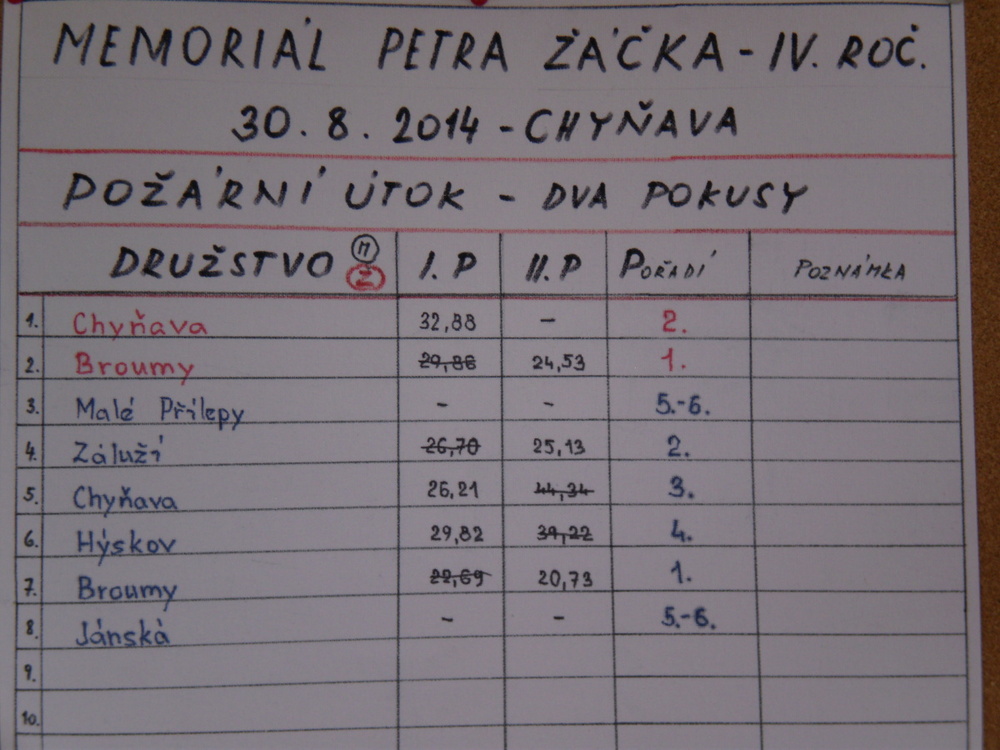 MEMORIÁL PETRA ŽÁČKA - IV. ROČ.
30. 8. 2014 - CHYŇAVA
POŽÁRNÍ ÚTOK - DVA POKUSY
DRUŽSTVO M Ž I. P II. P POŘADÍ POZNÁMKA
1. Chyňava 32,88 - 2.
2. Broumy 29,86 24,53 1.
3. Malé Přílepy - - 5.-6.
4. Záluží 26,70 25,13 2.
5. Chyňava 26,21 44,34 3.
6. Hýskov 29,82 39,22 4.
7. Broumy 22,69 20,73 1.
8. Jánská - - 5.-6.
9.
10.